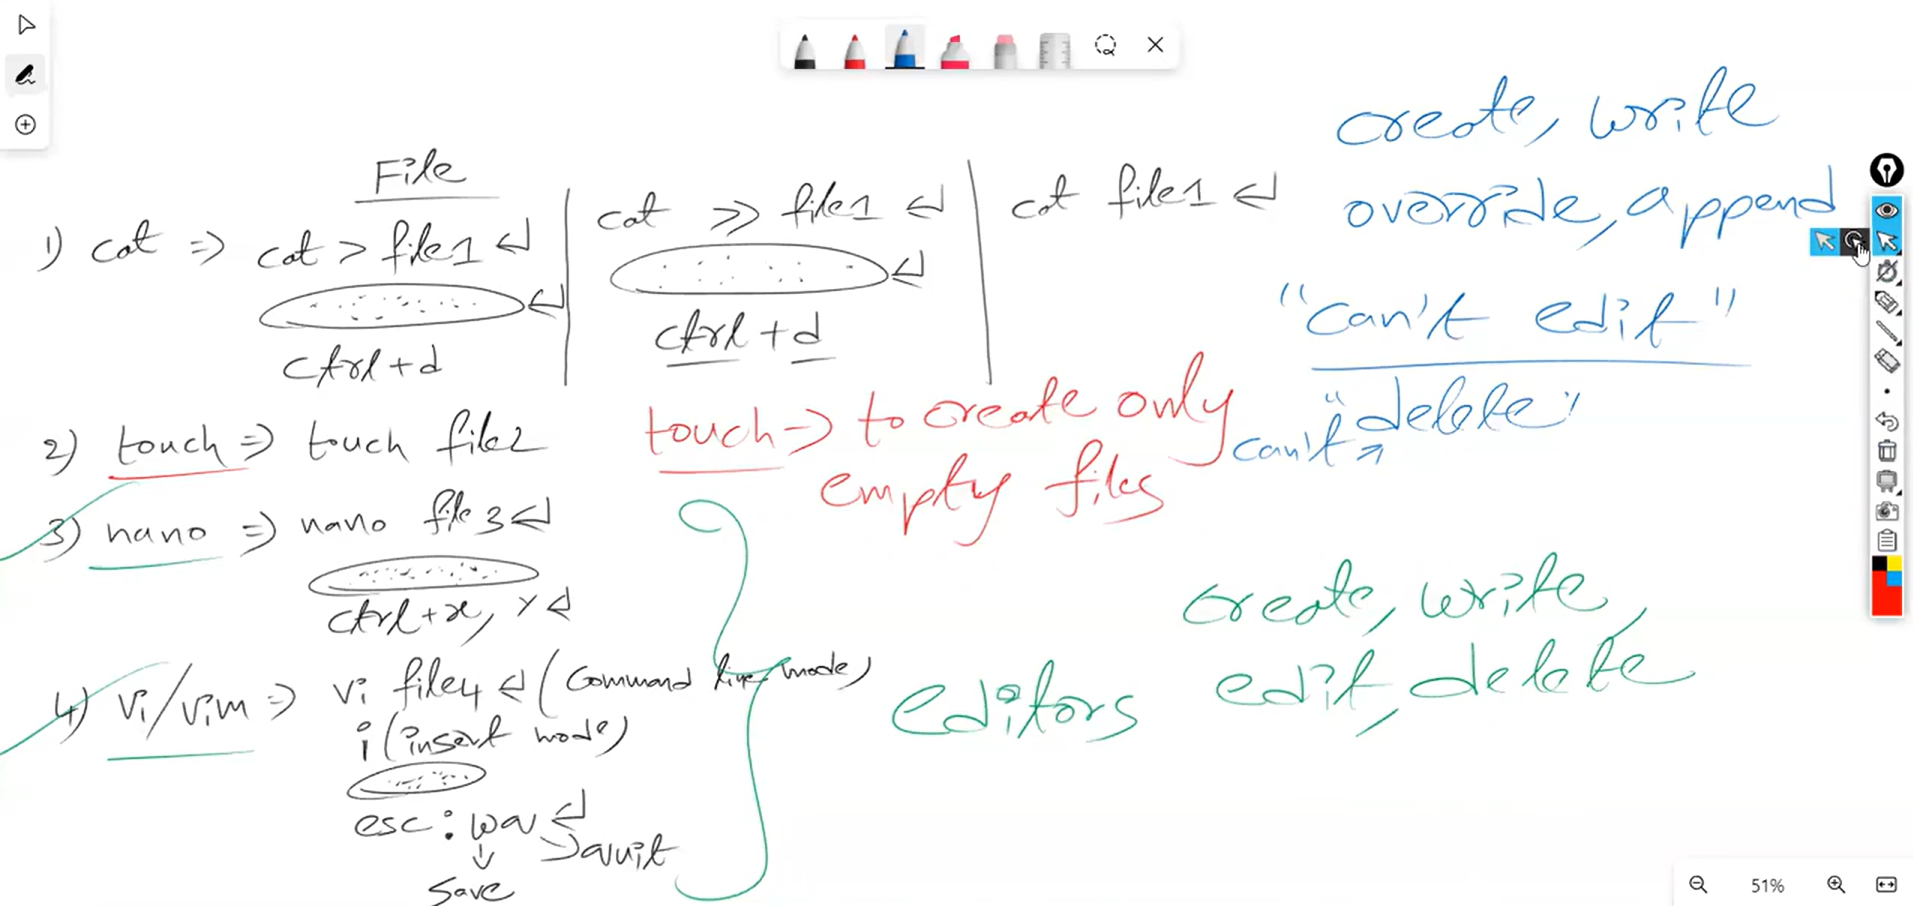 File
1) cat => cat > file1 ↵
ctrl+d
cat >> file1 ↵
ctrl + d
cat file1 ↵
create, write
override, append
"can't edit"
"delete"
can't ↗
2) touch => touch file2
touch => to create only
empty files
3) nano => nano file3 ↵
ctrl+x, Y ↵
4) vi/vim => vi file4 ↵ (Command line mode)
i (insert mode)
esc : wq ↵
↓
save
→ quit
editors
create, write,
edit, delete
51%